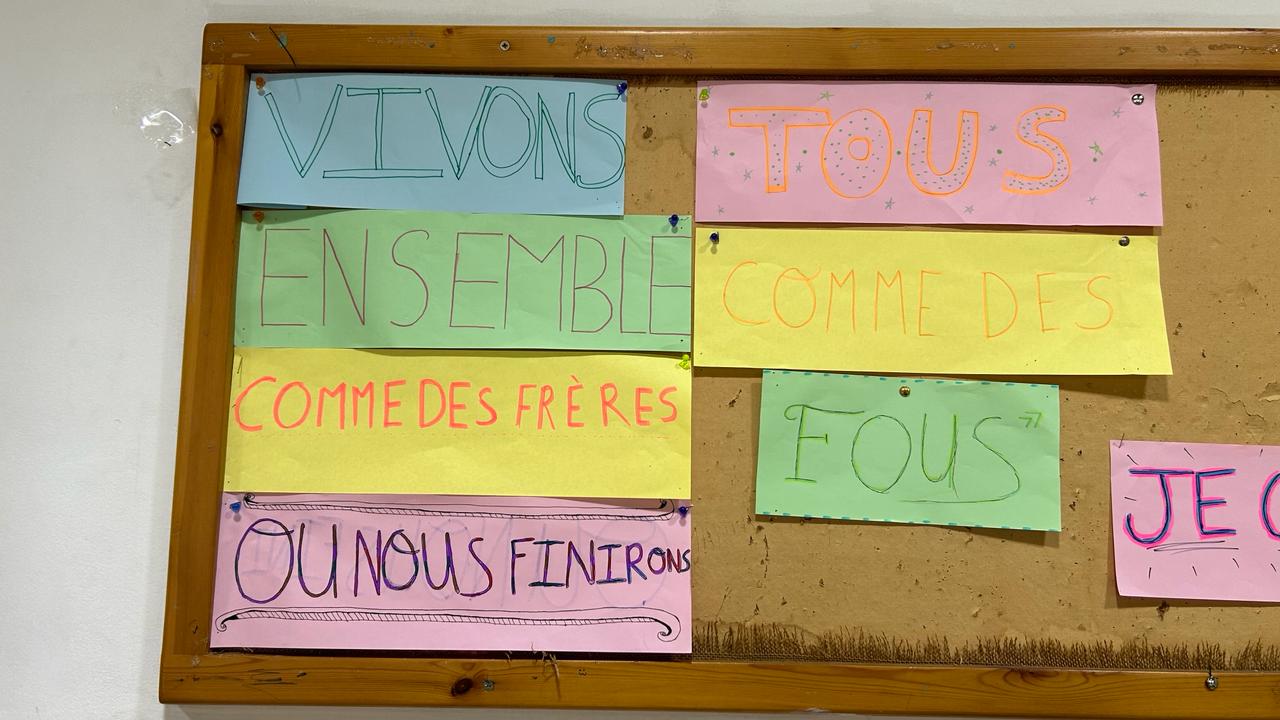 VIVONS
ENSEMBLE
COMME DES FRÈRES
OU NOUS FINIRONS
TOUS
COMME DES
FOUS"
JE